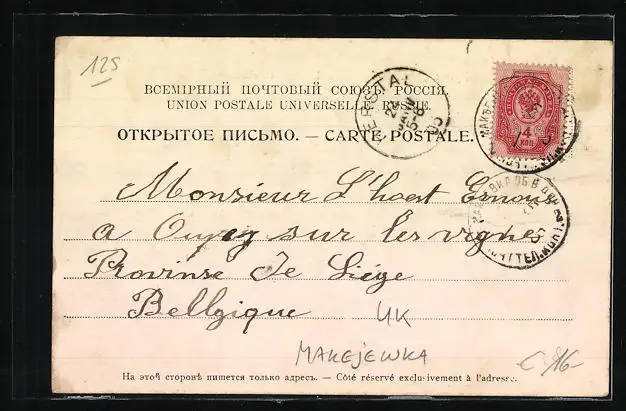 125
ВСЕМІРНЫЙ ПОЧТОВЫЙ СОЮЗЪ РОССІЯ.
UNION POSTALE UNIVERSELLE. RUSSIE.
HERSTAL
24
5-6
05
4
КОП
ОТКРЫТОЕ ПИСЬМО. — CARTE POSTALE.
Monsieur L'hoest Ernous
a Oupey sur les vignes
Provinse De Liége
Bellgique
UK
MAKEJEWKA
C 16-
На этой сторонѣ пишется только адресъ. — Côté réservé exclusivement à l'adresse.